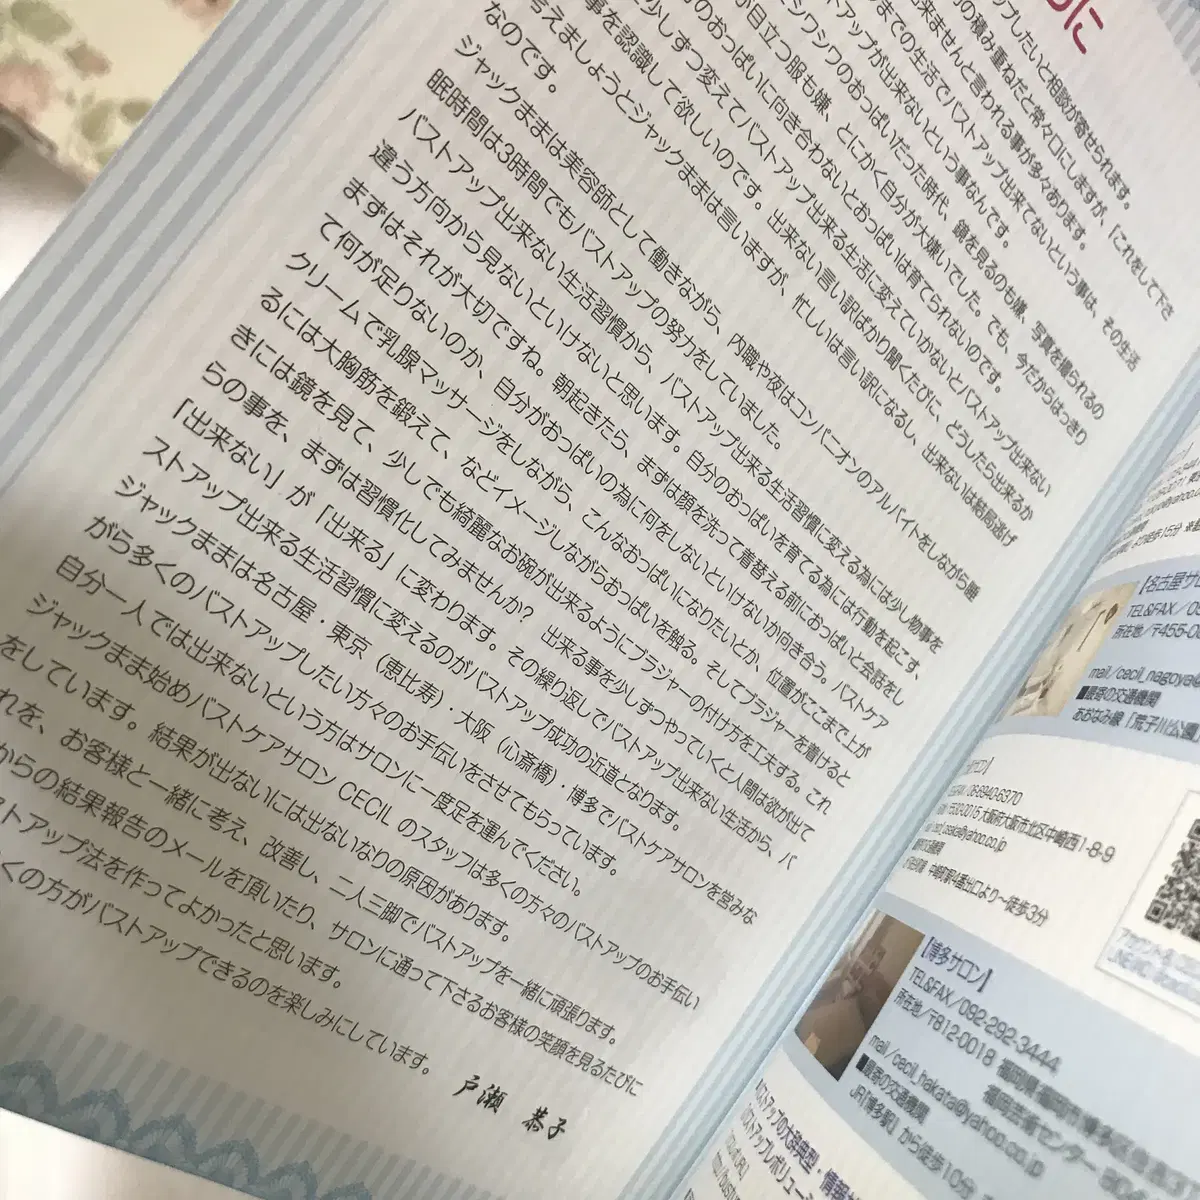 もに
プしたいと相談が寄せられます。
の積み重ねだと常々口にしますが、「これをして下さ
出来ませんと言われる事が多々あります。
までの生活でバストアップ出来てないという事は、その生活
ストアップが出来ないという事なんです。
シワシワのおっぱいだった時代、鏡を見るのも嫌、写真を撮られるの
が目立つ服も嫌、とにかく自分が大嫌いでした。でも、今だからはっきり
のおっぱいに向き合わないとおっぱいは育てられないのです。
少しずつ変えてバストアップ出来る生活に変えていかないとバストアップ出来ない
事を認識して欲しいのです。出来ない言い訳ばかり聞くたびに、どうしたら出来るか
考えましょうとジャックままは言いますが、忙しいは言い訳になるし、出来ないは結局逃げ
なのです。
ジャックままは美容師として働きながら、内職や夜はコンパニオンのアルバイトをしながら睡
眠時間は3時間でもバストアップの努力をしていました。
バストアップ出来ない生活習慣から、バストアップ出来る生活習慣に変える為には少し物事を
違う方向から見ないといけないと思います。自分のおっぱいを育てる為には行動を起こす、
まずはそれが大切ですね。朝起きたら、まずは顔を洗って着替える前におっぱいと会話をし
て何が足りないのか、自分がおっぱいの為に何をしないといけないか向き合う。バストケア
クリームで乳腺マッサージをしながら、こんなおっぱいになりたいとか、位置がここまで上が
るには大胸筋を鍛えて、などイメージしながらおっぱいを触る。そしてブラジャーを着けると
きには鏡を見て、少しでも綺麗なお椀が出来るようにブラジャーの付け方を工夫する。これ
らの事を、まずは習慣化してみませんか? 出来る事を少しずつやっていくと人間は欲が出て
「出来ない」が「出来る」に変わります。その繰り返しでバストアップ出来ない生活から、バ
ストアップ出来る生活習慣に変えるのがバストアップ成功の近道となります。
ジャックままは名古屋・東京（恵比寿）・大阪（心斎橋）・博多でバストケアサロンを営みな
がら多くのバストアップしたい方々のお手伝いをさせてもらっています。
自分一人では出来ないという方はサロンに一度足を運んでください。
ジャックまま始めバストケアサロン CECIL のスタッフは多くの方々のバストアップのお手伝い
をしています。結果が出ないには出ないなりの原因があります。
れを、お客様と一緒に考え、改善し、二人三脚でバストアップを一緒に頑張ります。
からの結果報告のメールを頂いたり、サロンに通って下さるお客様の笑顔を見るたびに
ストアップ法を作ってよかったと思います。
くの方がバストアップできるのを楽しみにしています。
戸瀬 恭子
徒歩15分
【名古屋サロ
TEL&FAX／05
所在地／〒455-0
mail／cecil_nagoya@
■最寄の交通機関
あおなみ線「荒子川公園」
ロン】
FAX 06-6940-6370
〒530-0015 大阪府大阪市北区中崎西1-8-9
osaka@yahoo.co.jp
交通機関
4番出口より〜徒歩3分
【博多サロン】
TEL&FAX／092-292-3444
所在地／〒812-0018 福岡県福岡市博多区住吉
福岡芸術センター
mail／cecil_hakata@yahoo.co.jp
■最寄の交通機関
JR「博多駅」から徒歩10分